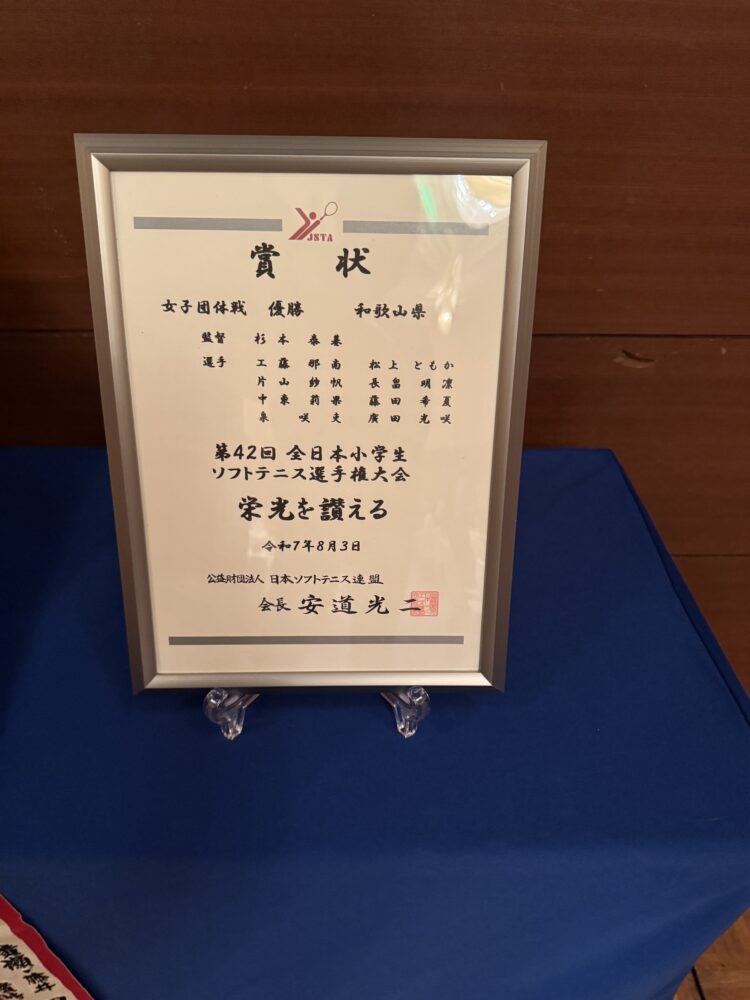 JSTA
賞 状
女子団体戦 優勝 和歌山県
監督 杉本 泰基
選手 工藤 那南 松上 ともか
片山 紗帆 長畠 明凛
中東 莉果 藤田 希夏
泉 咲 廣田 光咲
第42回 全日本小学生
ソフトテニス選手権大会
栄光を讃える
令和7年8月3日
公益財団法人 日本ソフトテニス連盟
会長 安道光二